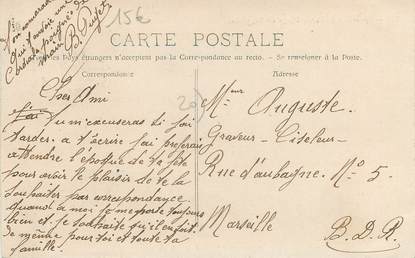 Ton camarade
qui t'envoie une
Cordiale poignée de
main B. Puget
15€
CARTE POSTALE
Tous les Pays étrangers n'acceptent pas la Correspondance au recto. - Se renseigner à la Poste.
Correspondance
Adresse
20
Cher Ami
Tu m'excuseras si j'ai
tarder a t'écrire j'ai préferai
attendre l'époque de ta fête
pour avoir le plaisir de te la
souhaiter par correspondance.
Quand à moi je me porte toujours
bien et je souhaite qu'il en soit
de même pour toi et toute ta
famille.
Mr
Auguste.
Graveur-Ciseleur
Rue d'aubagne. No 5.
Marseille
B.D.R.